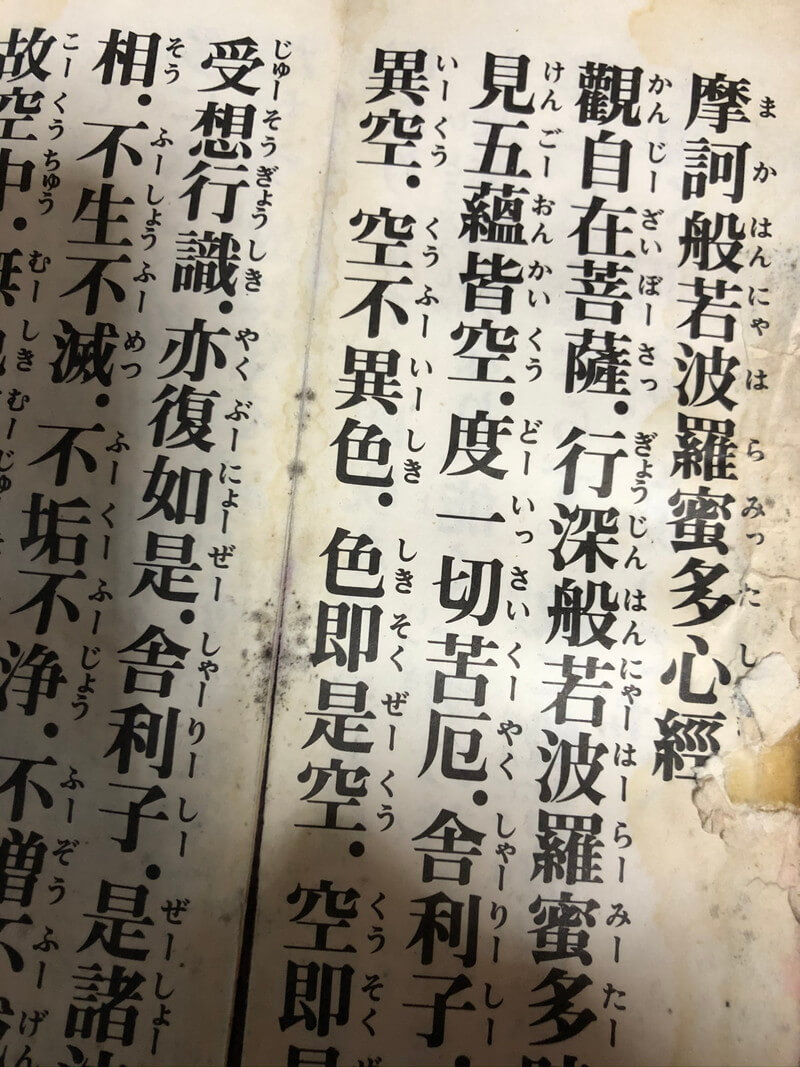 摩訶般若波羅蜜多心經
まかはんにゃはらみったし
觀自在菩薩.行深般若波羅蜜多
かんじーざいぼーさっぎょうじんはんにゃーはーらーみーたー
見五蘊皆空.度一切苦厄.舎利子.
けんごーおんかいくうどーいっさいくーやくしゃーりーしー
異空.空不異色.色即是空.空即是
いーくうくうふーいーしきしきそくぜーくうくうそくぜ
受想行識.亦復如是.舎利子.是諸
じゅーそうぎょうしきやくぶーにょーぜーしゃーりーしーぜーしょー
相.不生不滅.不垢不浄.不增不
そうふーしょうふーめつふーくーふーじょうふーぞうふーげん
故空中.無
こーくうちゅうむーしきむーじゅ